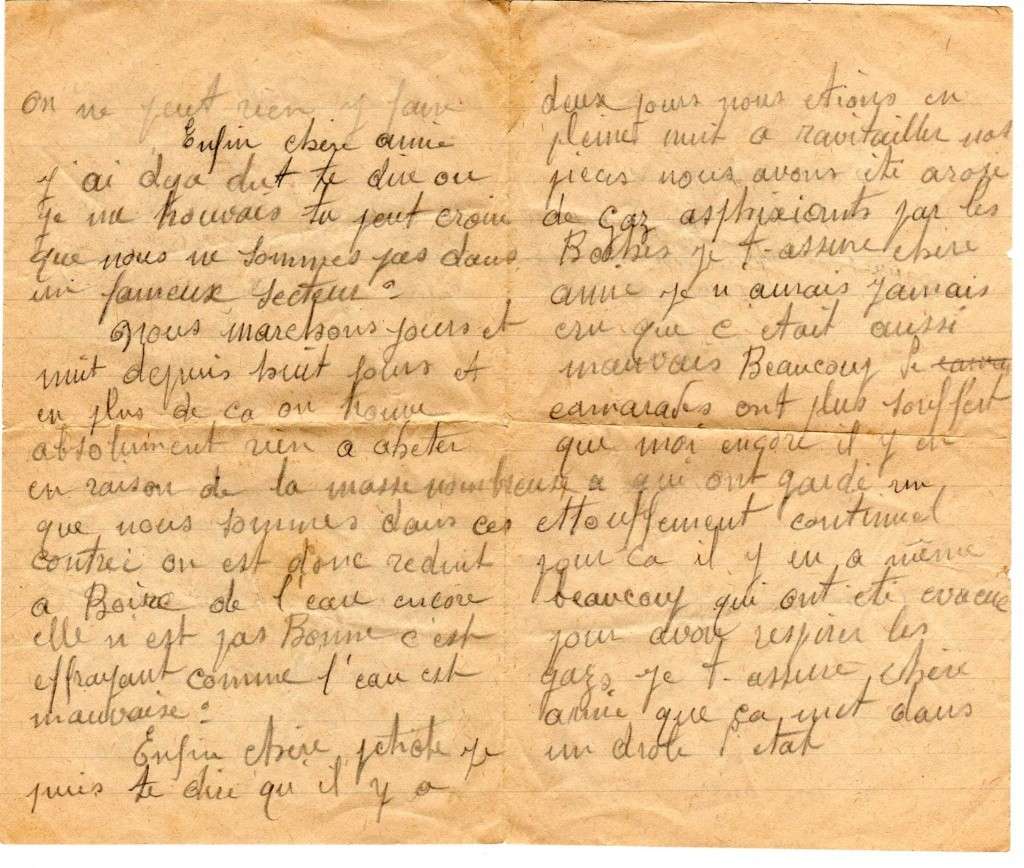 On ne peut rien y faire
Enfin chère amie
j'ai deja dut te dire ou
je me trouvais tu peut croire
que nous ne sommes pas dans
un fameux secteur.
Nous marchons jours et
nuit depuis huit jours et
en plus de ca on trouve
absolument rien a acheter
en raison de la masse nombreuse
que nous sommes dans ces
contrée on est donc reduit
a Boire de l'eau encore
elle n'est pas Bonne c'est
effrayant comme l'eau est
mauvaise.
Enfin chère petiote je
puis te dire qu'il y a
deux jours nous etions en
pleine nuit a ravitailler nos
pieces nous avons été arosé
de gaz asphixiants par les
Boches je t'assure chere
amie je n'aurais jamais
cru que c'etait aussi
mauvais Beaucoup de
camarades ont plus souffert
que moi encore il y en
a qui ont gardé un
ettouffement continuel
pour ca il y en a même
beaucoup qui ont eté evacué
pour avoir respirer les
gazs je t'assure chère
amie que ça met dans
un drole d'etat